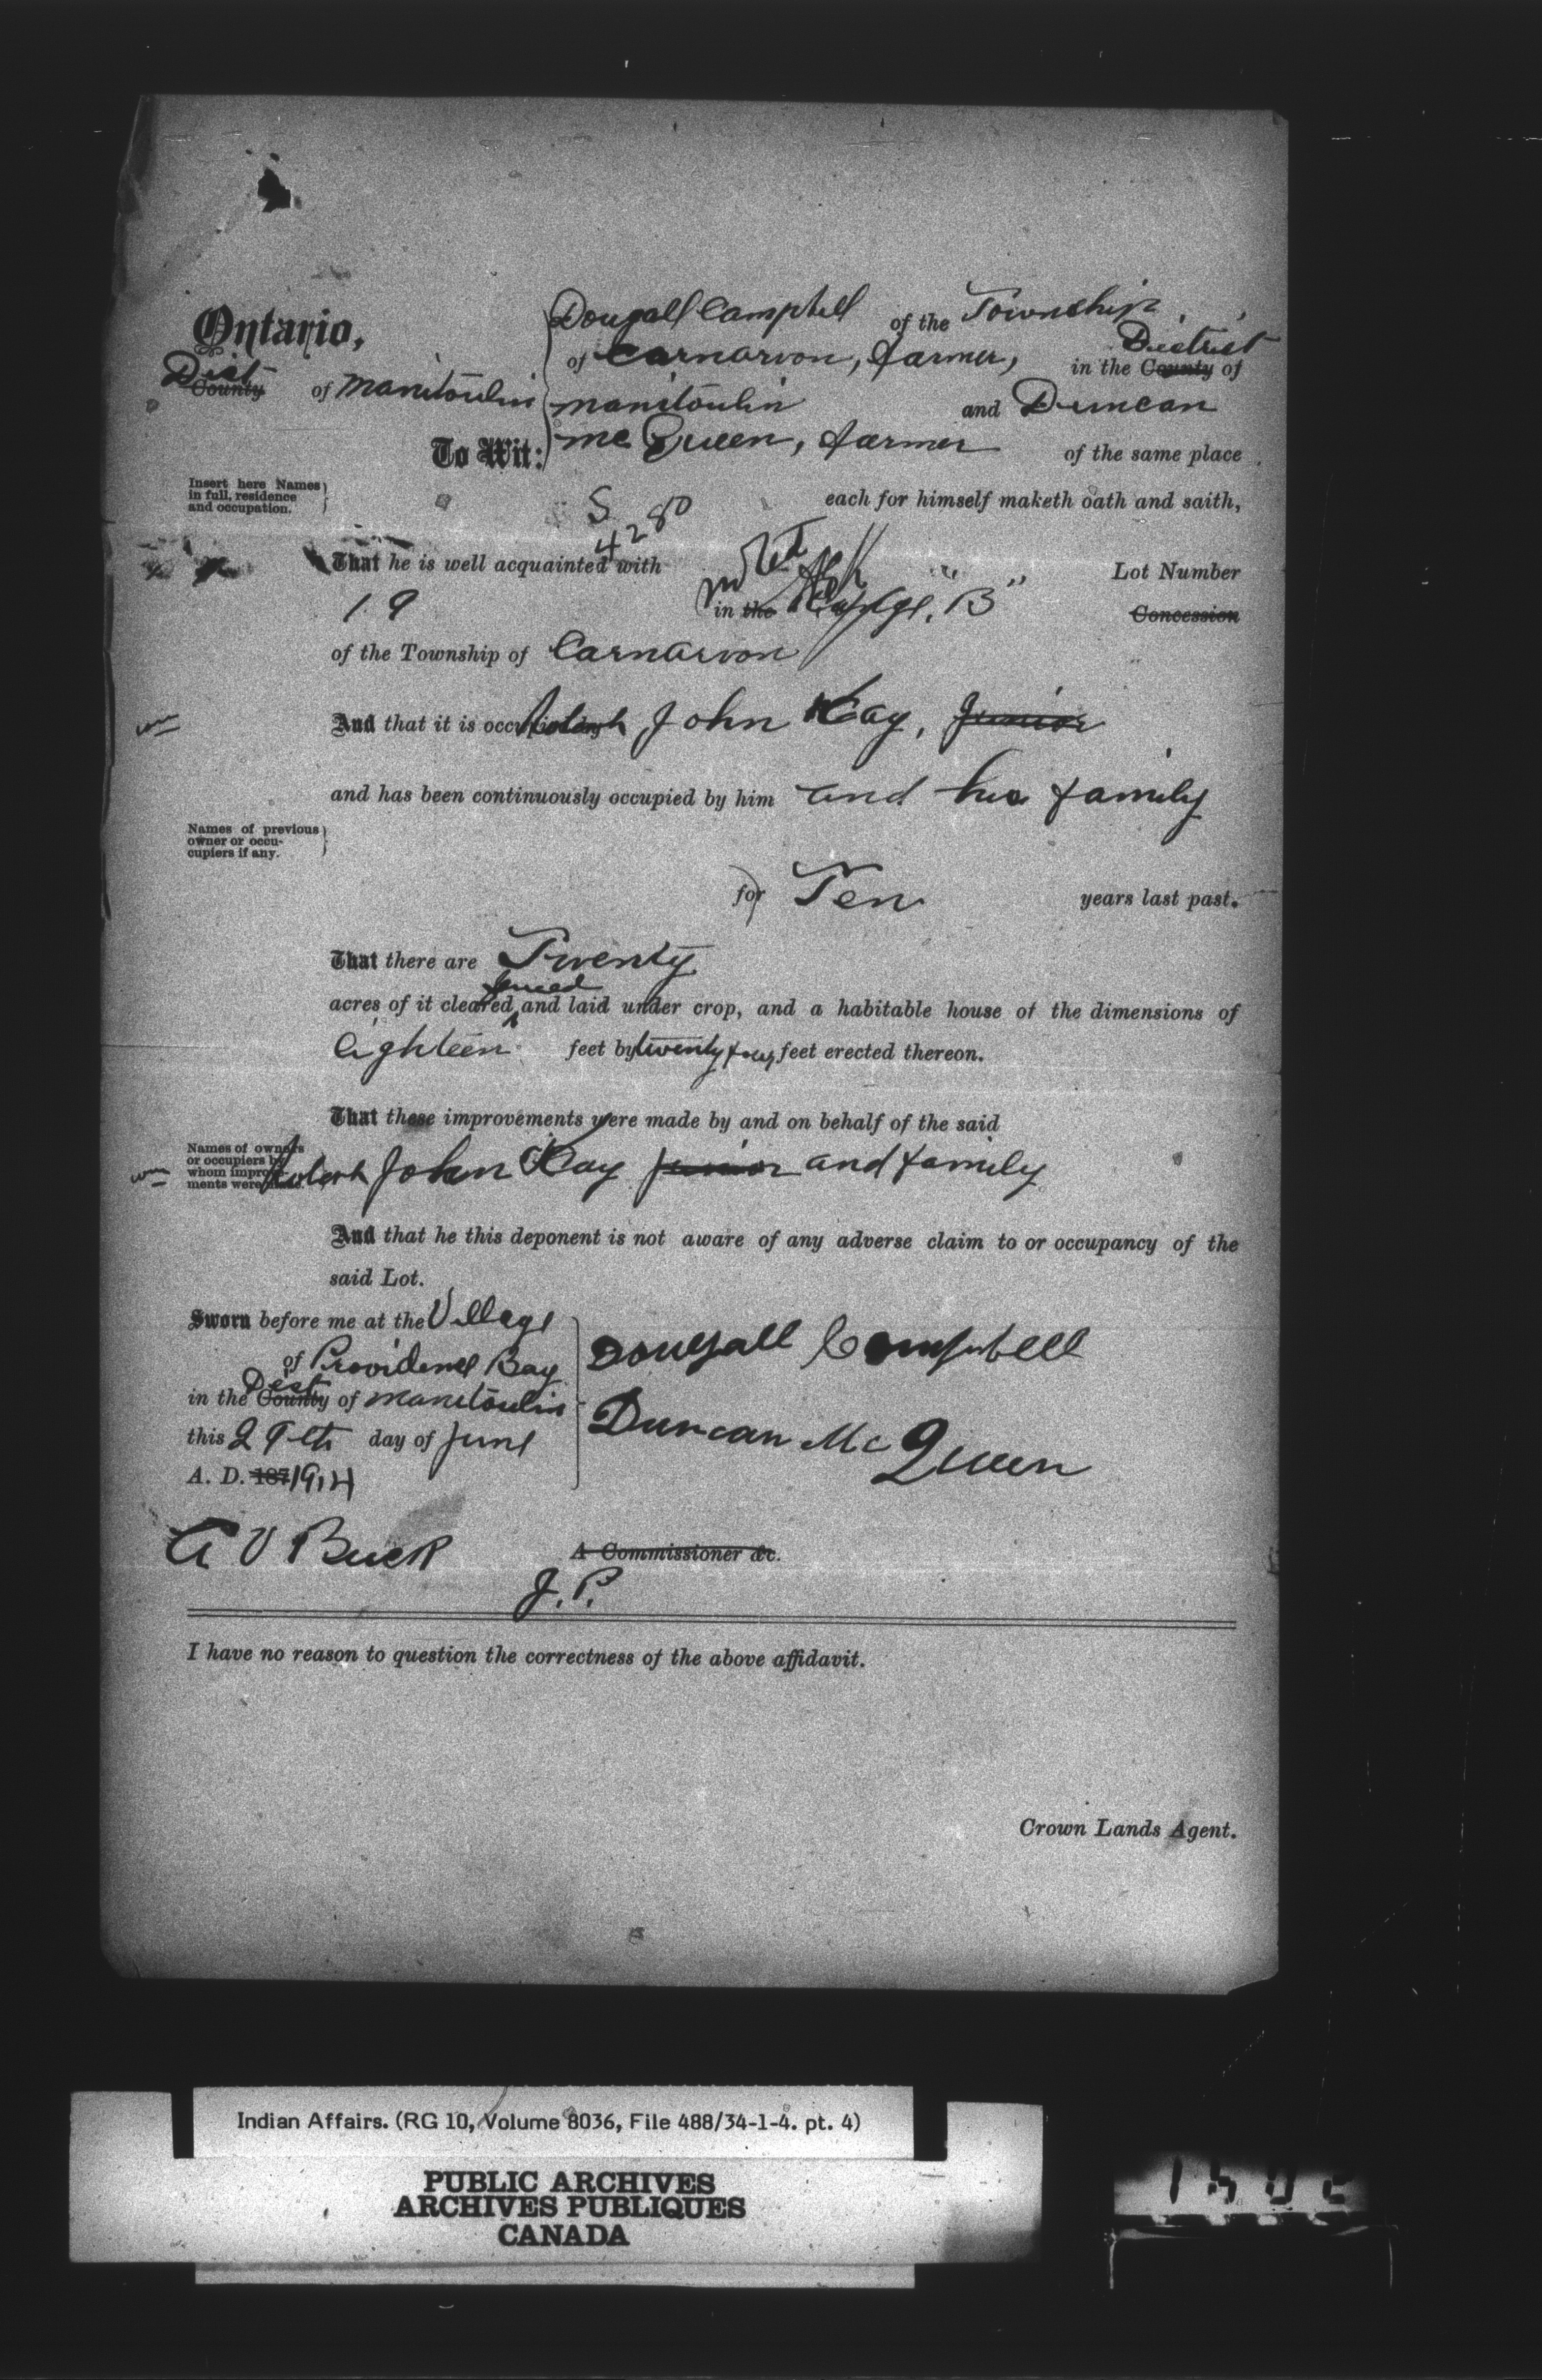 Ontario,
Dougall Campbell of the Township
of Carnarvon, farmer, in the County District of
Dist County of Manitoulin
Manitoulin and Duncan
To Wit: McQueen, farmer of the same place
Insert here Names in full, residence and occupation.
each for himself maketh oath and saith,
S 4280
That he is well acquainted with Lot Number
19 in the Range "B" Concession
of the Township of Carnarvon
And that it is occupied by Robert John Kay, Junior
and has been continuously occupied by him and his family
Names of previous owner or occu-
cupiers if any.
for Ten years last past.
That there are Twenty
acres of it cleared, fenced and laid under crop, and a habitable house of the dimensions of
Eighteen feet by twenty four feet erected thereon.
That these improvements were made by and on behalf of the said
Names of owners
or occupiers by
whom improve-
ments were made.
Robert John Kay Junior and family
And that he this deponent is not aware of any adverse claim to or occupancy of the
said Lot.
Sworn before me at the Village
of Providence Bay
in the County Dist of Manitoulin
this 29th day of June
A. D. 187 1914
Dougall Campbell
Duncan McQueen
A V Buck A Commissioner &c.
J. P.
I have no reason to question the correctness of the above affidavit.
Crown Lands Agent.
Indian Affairs. (RG 10, Volume 8036, File 488/34-1-4. pt. 4)
PUBLIC ARCHIVES
ARCHIVES PUBLIQUES
CANADA